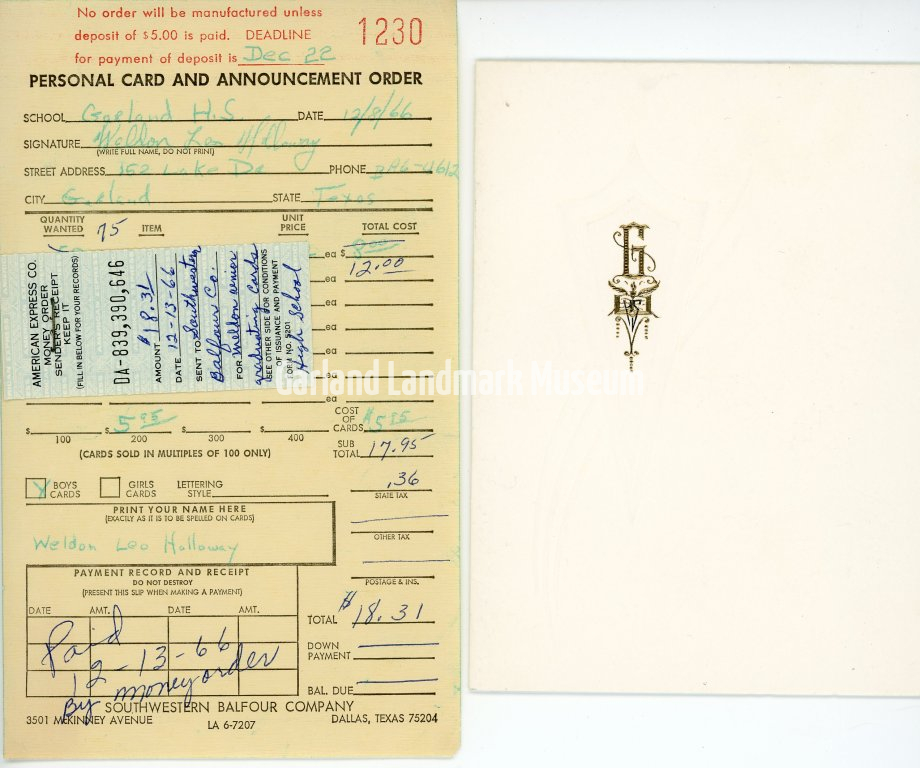 No order will be manufactured unless
deposit of $5.00 is paid. DEADLINE
for payment of deposit is Dec 22
1230
PERSONAL CARD AND ANNOUNCEMENT ORDER
SCHOOL Garland H.S. DATE 12/8/66
SIGNATURE Weldon Leo Holloway
(WRITE FULL NAME, DO NOT PRINT)
STREET ADDRESS 152 Lake Dr PHONE
CITY Garland STATE Texas
QUANTITY WANTED 75 ITEM UNIT PRICE TOTAL COST
ea $ 8.00
ea 12.00
ea
ea
ea
ea
ea
AMERICAN EXPRESS CO.
MONEY ORDER
SENDER'S RECEIPT
KEEP IT
(FILL IN BELOW FOR YOUR RECORDS)
DA-839,390,646
AMOUNT $18.31
DATE 12-13-66
SENT TO Southwestern
Balfour Co.
FOR Weldon senior
graduating cards
(SEE OTHER SIDE FOR CONDITIONS
OF ISSUANCE AND PAYMENT
FORM NO. 5201
High School
Garland Landmark Museum
$ $ 5.95 $ $
100 200 300 400
COST OF CARDS $5.95
(CARDS SOLD IN MULTIPLES OF 100 ONLY)
SUB TOTAL 17.95
.36
STATE TAX
BOYS CARDS GIRLS CARDS LETTERING STYLE
PRINT YOUR NAME HERE
(EXACTLY AS IT IS TO BE SPELLED ON CARDS)
Weldon Leo Holloway
OTHER TAX
POSTAGE & INS.
PAYMENT RECORD AND RECEIPT
DO NOT DESTROY
(PRESENT THIS SLIP WHEN MAKING A PAYMENT)
DATE AMT. DATE AMT.
Paid
12-13-66
By money order
TOTAL $18.31
DOWN PAYMENT
BAL. DUE
SOUTHWESTERN BALFOUR COMPANY
3501 McKINNEY AVENUE LA 6-7207 DALLAS, TEXAS 75204
G
H
S